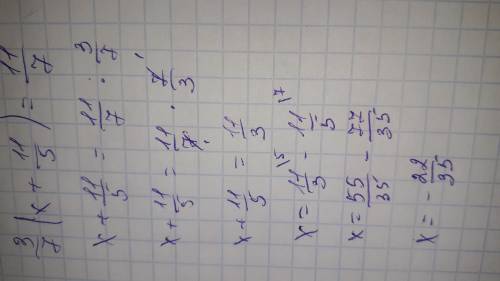 3/7 (x + 11/5) = 11/7
x + 11/5 = 11/7 · 3/7
x + 11/5 = 11/7 · 7/3
x + 11/5 = 11/3
x = 11/3 \5 - 11/5 \7
x = 55/35 - 77/35
x = - 22/35